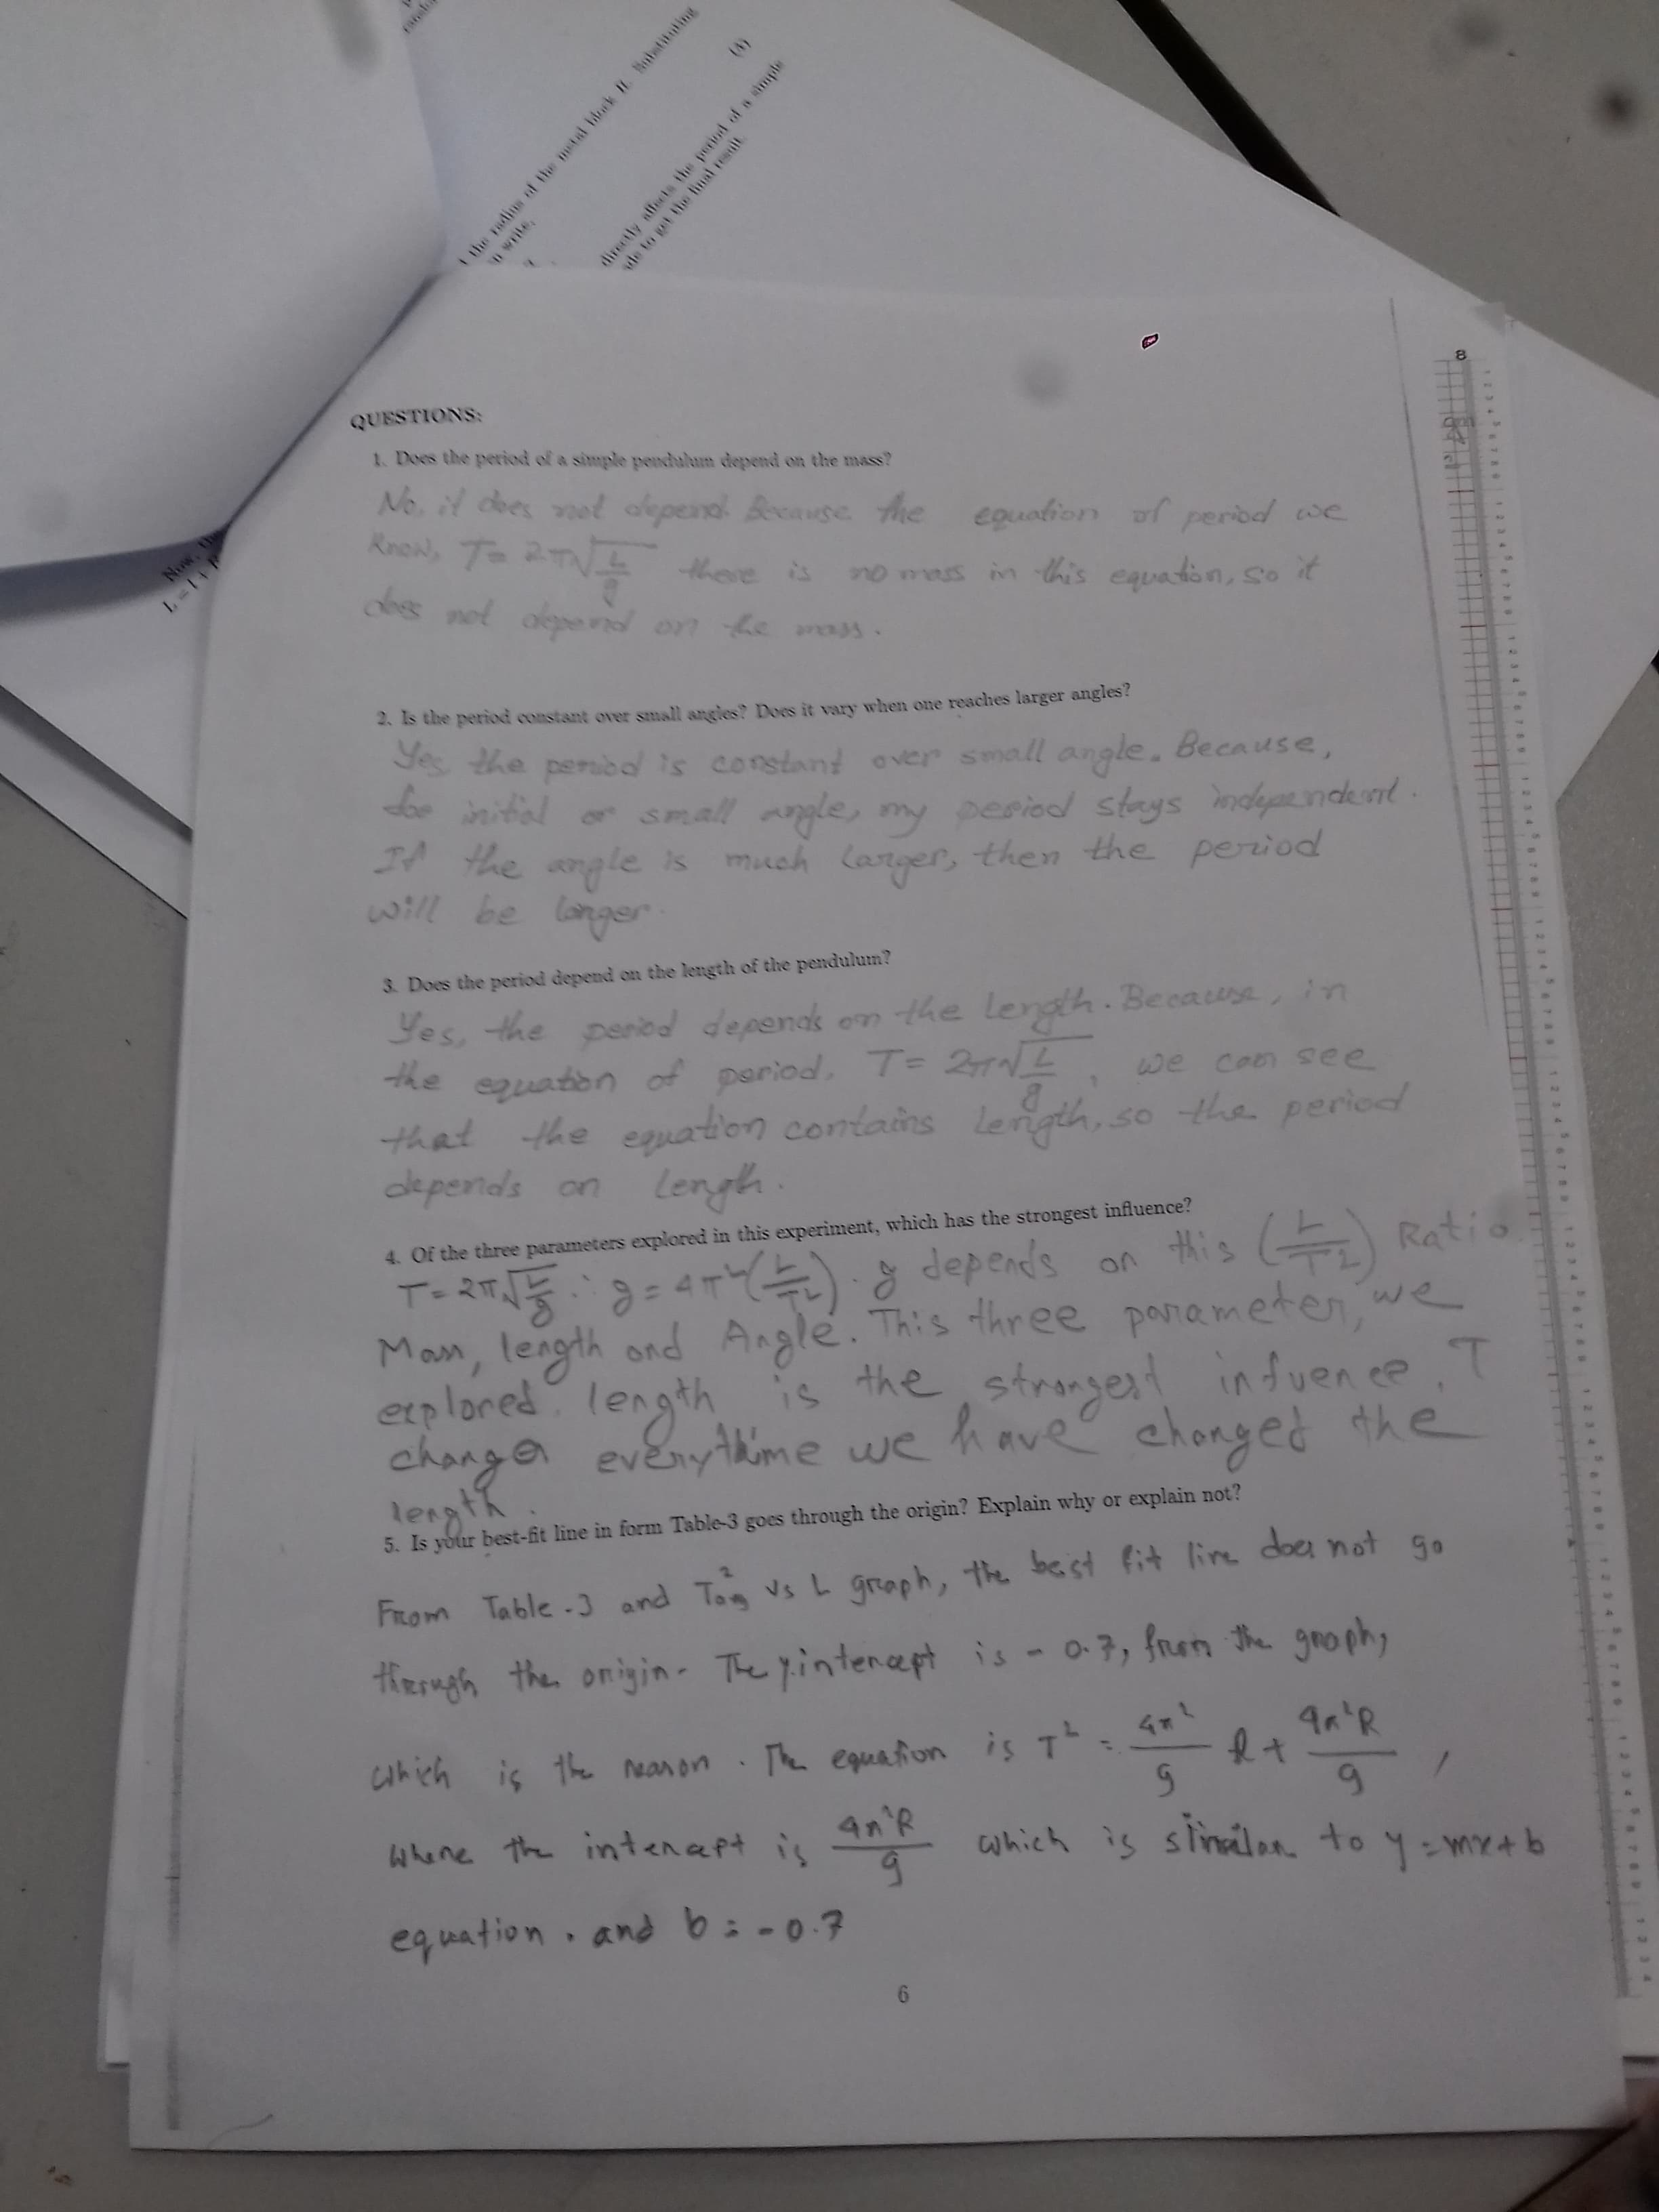 the radius of the metal block H. Substituting
write,
(8)
directly affects the period of a simple
to get the final result.
Now,
QUESTIONS:
1. Does the period of a simple pendulum depend on the mass?
No, it does not depend. Because the equation of period we
know, T = 2π√(L/g) there is no mass in this equation, so it
does not depend on the mass.
2. Is the period constant over small angles? Does it vary when one reaches larger angles?
Yes, the period is constant over small angle. Because,
for initial or small angle, my period stays independent.
If the angle is much larger, then the period
will be longer.
3. Does the period depend on the length of the pendulum?
Yes, the period depends on the length. Because, in
the equation of period, T = 2π√(L/g), we can see
that the equation contains length, so the period
depends on length.
4. Of the three parameters explored in this experiment, which has the strongest influence?
T = 2π√(L/g) ∴ g = 4π²(L/T²). g depends on this (L/T²) Ratio.
Mass, length and Angle. This three parameter, we
explored. length is the strongest infuence. T
changes everytime we have changed the
length.
5. Is your best-fit line in form Table-3 goes through the origin? Explain why or explain not?
From Table-3 and T²avg vs L graph, the best fit line does not go
through the origin. The y.intercept is -0.7, from the graph,
which is the reason. The equation is T² = 4π²/g l + 4π²R/g,
where the intercept is 4π²R/g which is similar to y = mx + b
equation. and b = -0.7
6
8